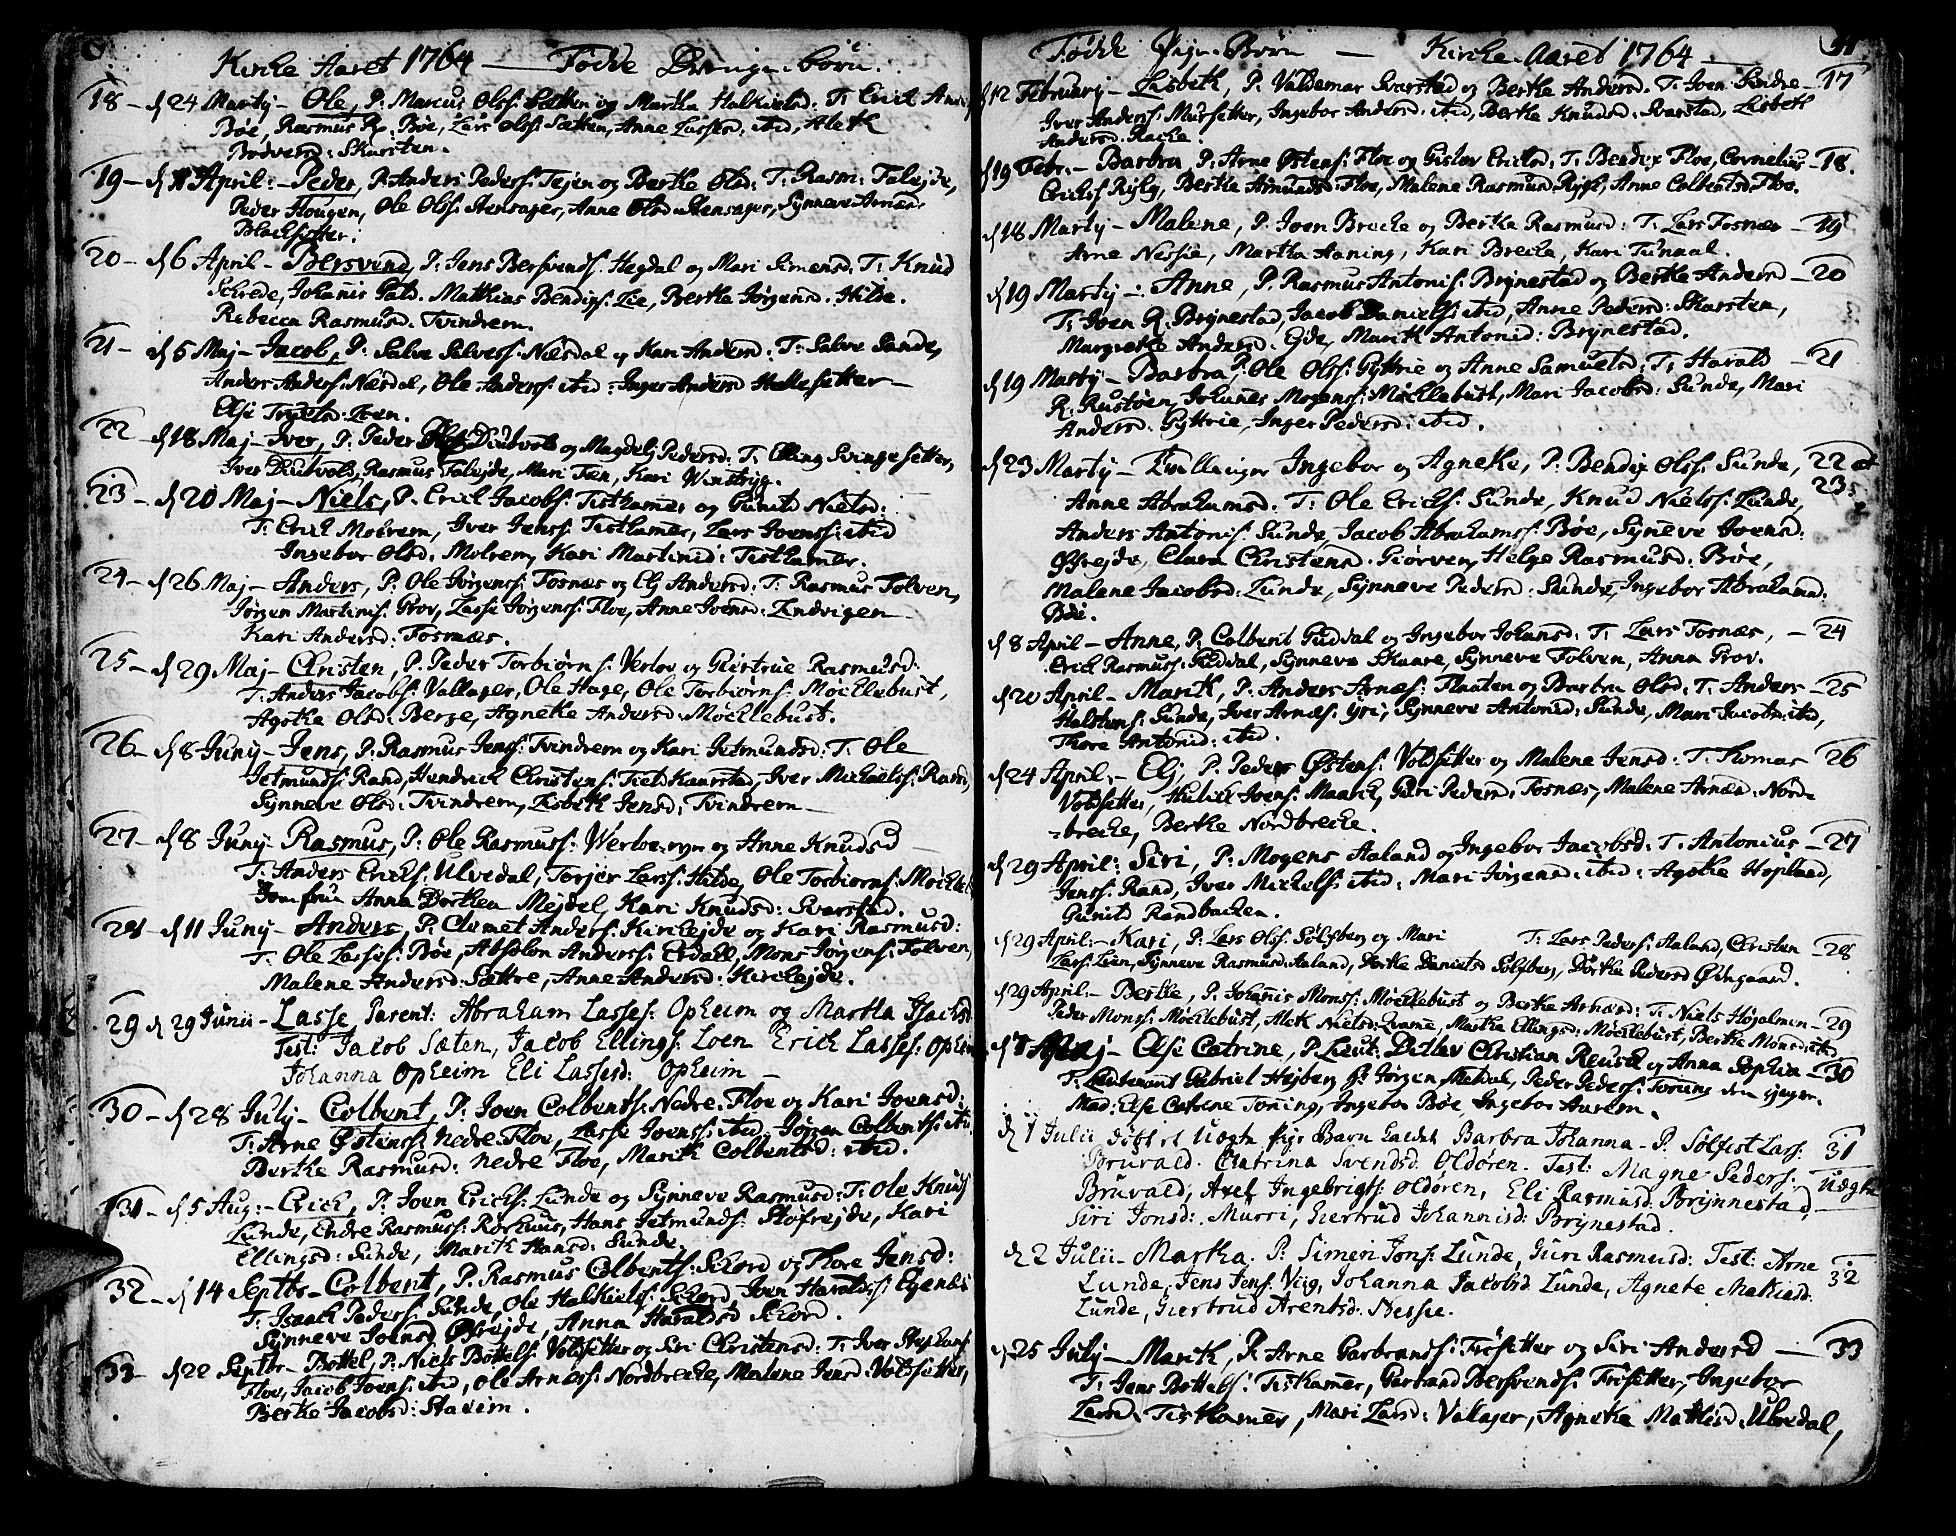 Kirke Aaret 1764 — Fødde Drenge-børn.
18 - d 24 Martij - Ole, P. Marcus Olss: Sætten og Martha Halkielsd: T: Erich
Bøe, Rasmus R. Bøe, Lars Olss: Sætten, Anne Lassesd: ibid, Aleth
Bodversd: Skarsten.
19 - d April: - Peder, P. Anders Peders: Tejen og Berthe Olsd: T: Rasm: Faleide,
Peder Flougen, Ole Olss: Stensager, Anne Olsd Stensager, Synneve Arnesd
Blachsetter:
20 - d 6 April - Bersvend, P: Jens Bersvends: Hegdal og Mari Simensd: T: Knud
Schrede, Johanis Gald. Matthias Bendixs: Lie, Berthe Jørgensd. Hilde.
Rebecca Rasmusd. Tvindrem.
21 - d 5 Maj - Jacob, P: Salve Salvess: Næsdal og Kari Andersd: T: Salve Sande,
Anders Anderss: Næsdal, Ole Anderss: ibid: Inger Andersd Hellesetter -
Else Loen.
22 - d 18 Maj - Iver, P: Peder Diubvols og Magdeli Pedersd: T. Elling Svingesetter,
Iver Diubvols, Rasmus Faleide, Mari Tien, Kari Winsryg.
23 - d 20 Maj - Niels, P. Erich Jacobs: Tisthamer og Gunild Nielsd:
T: Erich Molrem, Iver Jenss: Tisthamer, Lars Joenss: ibid
Ingebor Olsd: Molrem, Kari Martinid: Tisthamer.
24 - d 26 Maj - Anders, P: Ole Jørgenss: Fosnæs og Eli Andersd: T: Rasmus Folven,
Jørgen Martinis: Grov, Lasse Jørgenss: Floe, Anne Ivensd: Endvigen
Kari Andersd: Fosnæs.
25 - d 29 Maj - Christen, P. Peder Torbiørns: Verlov og Giertrue Rasmusd:
T. Anders Jacobs: Vallager, Ole Hage, Ole Torbiørns: Møchlebust,
Agothe Olsd: Berge, Agnethe Andersd: Møchlebust.
26 - d 8 Juny - Jens, P. Rasmus Jenss: Tvindrem og Kari Jetmundsd: T: Ole
Jetmunds: Rand, Hendrich Christens: Kaarstad, Iver Michaelss: Rand,
Synneve Olsd: Tvindrem, Lisbeth Jensd: Tvindrem -
27 - d 8 Juny - Rasmus, P: Ole Rasmuss: Werloe og Anne Knudsd -
T. Anders Erichs: Ulvedal, Torjer Larss: Hilde, Ole Torbiørns: Møchleb
Jomfrue Anna Dorthea Mejdel, Kari Knudsd: Svarstad.
28 - d 11 Juny - Anders, P. Clemet Anders: Kirkejde og Kari Rasmusd:
T. Ole Lasses: Bøe, Absolon Anderss: Erdael, Mons Jørgens: Folven,
Malene Andersd: Sættre, Anne Andersd: Kirkejde.
29 d 29 Junii - Lasse, Parent: Abraham Lasses: Opheim og Martha Isachsd
Test: Jacob Sæten, Jacob Ellings: Loen Erich Lasses: Opheim
Johanna Opheim Eli Lassesd: Opheim -
30 - d 28 July - Colbent, P: Joen Colbents: Nedre-Floe og Kari Joensd:
T: Arne Østens: Nedre Floe, Lasse Joenss: ibid, Jørgen Colbents: ibi.
Berthe Rasmusd: Nedre Floe, Marith Colbentsd: ibid.
31 - d 5 Aug: - Erich, P. Joen Erichs: Lunde og Synneve Rasmusd: T: Ole Knuds
Lunde, Endre Rasmuss: Rørhuus, Hans Jetmunds: Stofrejde, Kari
Ellingsd: Sunde, Marith Hansd: Sunde
32 - d 14 Septbr - Colbent, P. Rasmus Colbents: Schord og Thore Jensd:
T: Isaach Peders: Sunde, Ole Halkiels: Schord Joen Haralds: Egenes
Synneve Joensd Øvrejde, Anna Haraldsd Schord.
33 - d 22 Septbr - Bottel, P: Niels Bottels: Voldsetter og Siri Christensd: T: Iver Stephans
Floe, Jacob Joens: ibid, Ole Arness: Nordbreche, Malene Jensd: Voldsetter,
Berthe Jacobsd: Stareim.
Fødde Pige-Børn — Kirke-Aaret 1764 —
d 12 February - Lisbeth, P. Valdemar Svarstad og Berthe Andersd. T. Joen Endre - 17
Iver Anderss: Mursetter, Ingebor Andersd: ibid, Berthe Knudsd: Svarstad, Lisbeth
Andersd. Rache.
d 19 Febr. - Barbra P. Arne Østens: Floe og Gislov Erichsd: T: Bendix Floe, Cornelius - 18.
Erichss Rygg, Berthe Amundsd: Floe, Malene Rasmusd: Rygg, Anne Colbentsd: Floe.
d 18 Marty - Malene, P. Joen Breche og Berthe Rasmusd: T. Lars Fosnæs - 19
Arne Nessie, Martha Aaning, Kari Breche, Kari Tunaal.
d 19 Marty -: Anne, P. Rasmus Antonis: Brynestad og Berthe Andersd - 20
T. Joen R. Brynestad, Jacob Daniels: ibid, Anne Pedersd: Skarsten,
Margrethe Andersd. Gde, Marith Antonid: Brynestad.
d 19 Marty - Barbra, P: Ole Olss: Gyttrie og Anne Samuelsd: T: Harald - 21
R. Rustøen, Johanes Mogens: Møchlebust, Mari Jacobsd: Sunde, Mari
Andersd. Gyttrie, Inger Pedersd: ibid.
d 23 Marty - Tvillinger Ingebor og Agnethe, P. Bendix Olss: Sunde, 22 et
23:
Anne Abrahamsd. T: Ole Erichs: Sunde, Knud Nielss: Lunde,
Anders Antonis: Sunde, Jacob Abrahams: Bøe, Syneve Joensd:
Øvrejde, Clara Christensd. Giørven, Helge Rasmusd: Bøe,
Malene Jacobsd: Lunde, Synneve Pedersd: Sunde, Ingebor Abrahamsd:
Bøe.
d 8 April - Anne, P. Colbent Guddal og Ingebor Johansd: T. Lars Fosnæs, - 24
Erich Rasmuss: Guddal, Synneve Skaare, Synneve Folven, Anna Grov.
d 20 April - Marith, P. Anders Arnes: Flaaten og Barbra Olsd: T. Anders - 25
Halstens: Sunde, Iver Arnes: Yri, Synneve Antonid: Sunde, Mari Jacobsd: ibid,
Thore Antonid: ibid.
d 24 April. - Eli, P. Peder Østens: Voldsetter og Malene Jensd: T: Thomas 26
Voldsetter, Joens: Maurit, Guri Pedersd: Fosnæs, Malene Arnesd: Nord-
breche, Berthe Nordbreche.
d 29 April: Siri, P. Mogens Aaland og Ingebor Jacobsd: T. Antonius - 27
Jenss: Rand, Iver Michels: ibid: Mari Jørgensd: ibid: Agothe Hopland,
Gunild Randbachen.
d 29 April: - Kari, P. Lars Olss: Sølfberg og Mari T. Lars Peders: Aaland, Christen - 28
Lars: Lien, Synneve Rasmusd: Aaland, Dorthe Danielsd Sølfberg, Dorthe Pedersd Ødegaard.
d 29 April - Berthe, P. Johannis Mons: Møchlebust og Berthe Arnesd: T: Niels Højalmen - 29
Peder Mons: Møchlebust, Aleth Nielsd: Qvame, Marthe Ellingsd: Møchlebust, Berthe Monsd: ibid
d 8 Maj - Else Catrine, P. Lieut: Detlov Christian Reusch og Anna Sophia - 30
T. Lieutenant Gabriel Hejberg, Jørgen Mejdal, Peder Peders: Toning den yngre.
Mad: Else Catrine Toning, Ingebor Bøe, Ingebor Aarem.
d 1 Julii døbt et uægte Pige Barn kaldet Barbra Johanna - P. Solfest Lars: 31
Bruvald. Chatrina Svendsd. Oldøren. Test: Magne Peders: uægte
Bruvald, Axel Ingebrigts: Oldøren, Eli Rasmusd: Brynnestad,
Siri Jonsd: Murri, Giertrud Johannisd: Brynestad.
d 2 Julii - Martha. P: Simen Jons: Lunde, Guri Rasmusd: Test: Arne 32
Lunde, Jens Jens: Viig, Johanna Jacobsd Lunde, Agnete Mathiesd:
Lunde, Giertrud Arentsd: Nessie.
d 25 July - Marith, P. Arne Garbrands: Frøsetter og Siri Andersd - 33
T: Jens Bottels: Tisthamer, Garbrand Bersvends: Frøsetter, Ingebor
Larsd: Tisthamer, Mari Larsd: Valager, Agnetha Mathisd: Ulvedal,